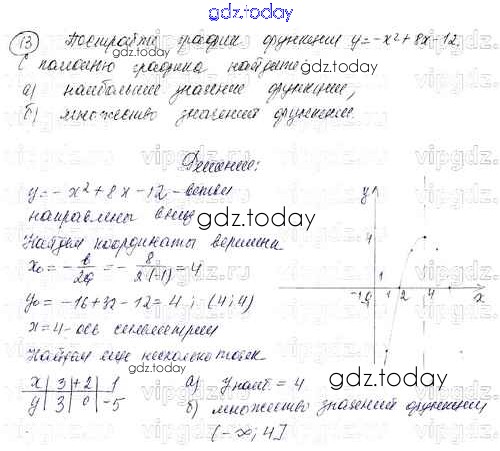 gdz.today
13 Постройте график функции y=-x²+8x-12.
С помощью графика найдите
а) наибольшее значение функции,
б) множество значений функции.
Решение:
y=-x²+8x-12 - ветви
направлены вниз
Найдём координаты вершины
x₀ = - b/2a = - 8/2·(-1) = 4
y₀ = -16+32-12=4; (4;4)
x=4 - ось симметрии
Найдём еще несколько точек
x | 3 | 2 | 1
y | 3 | 0 | -5
а) y наиб = 4
б) множество значений функции
(-∞; 4]
y
4
1
-1 0 1 2 4 x
gdz.today
gdz.today
gdz.today
gdz.today